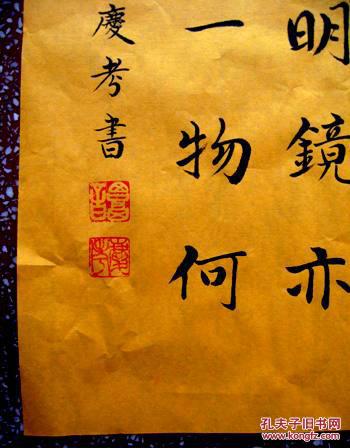 明鏡亦
一物何
慶考書
孔夫子旧书网
www.kongfz.com